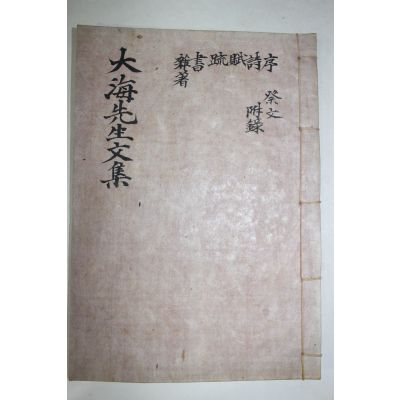 序詩賦疏書雜著
祭文
附錄
大海先生文集